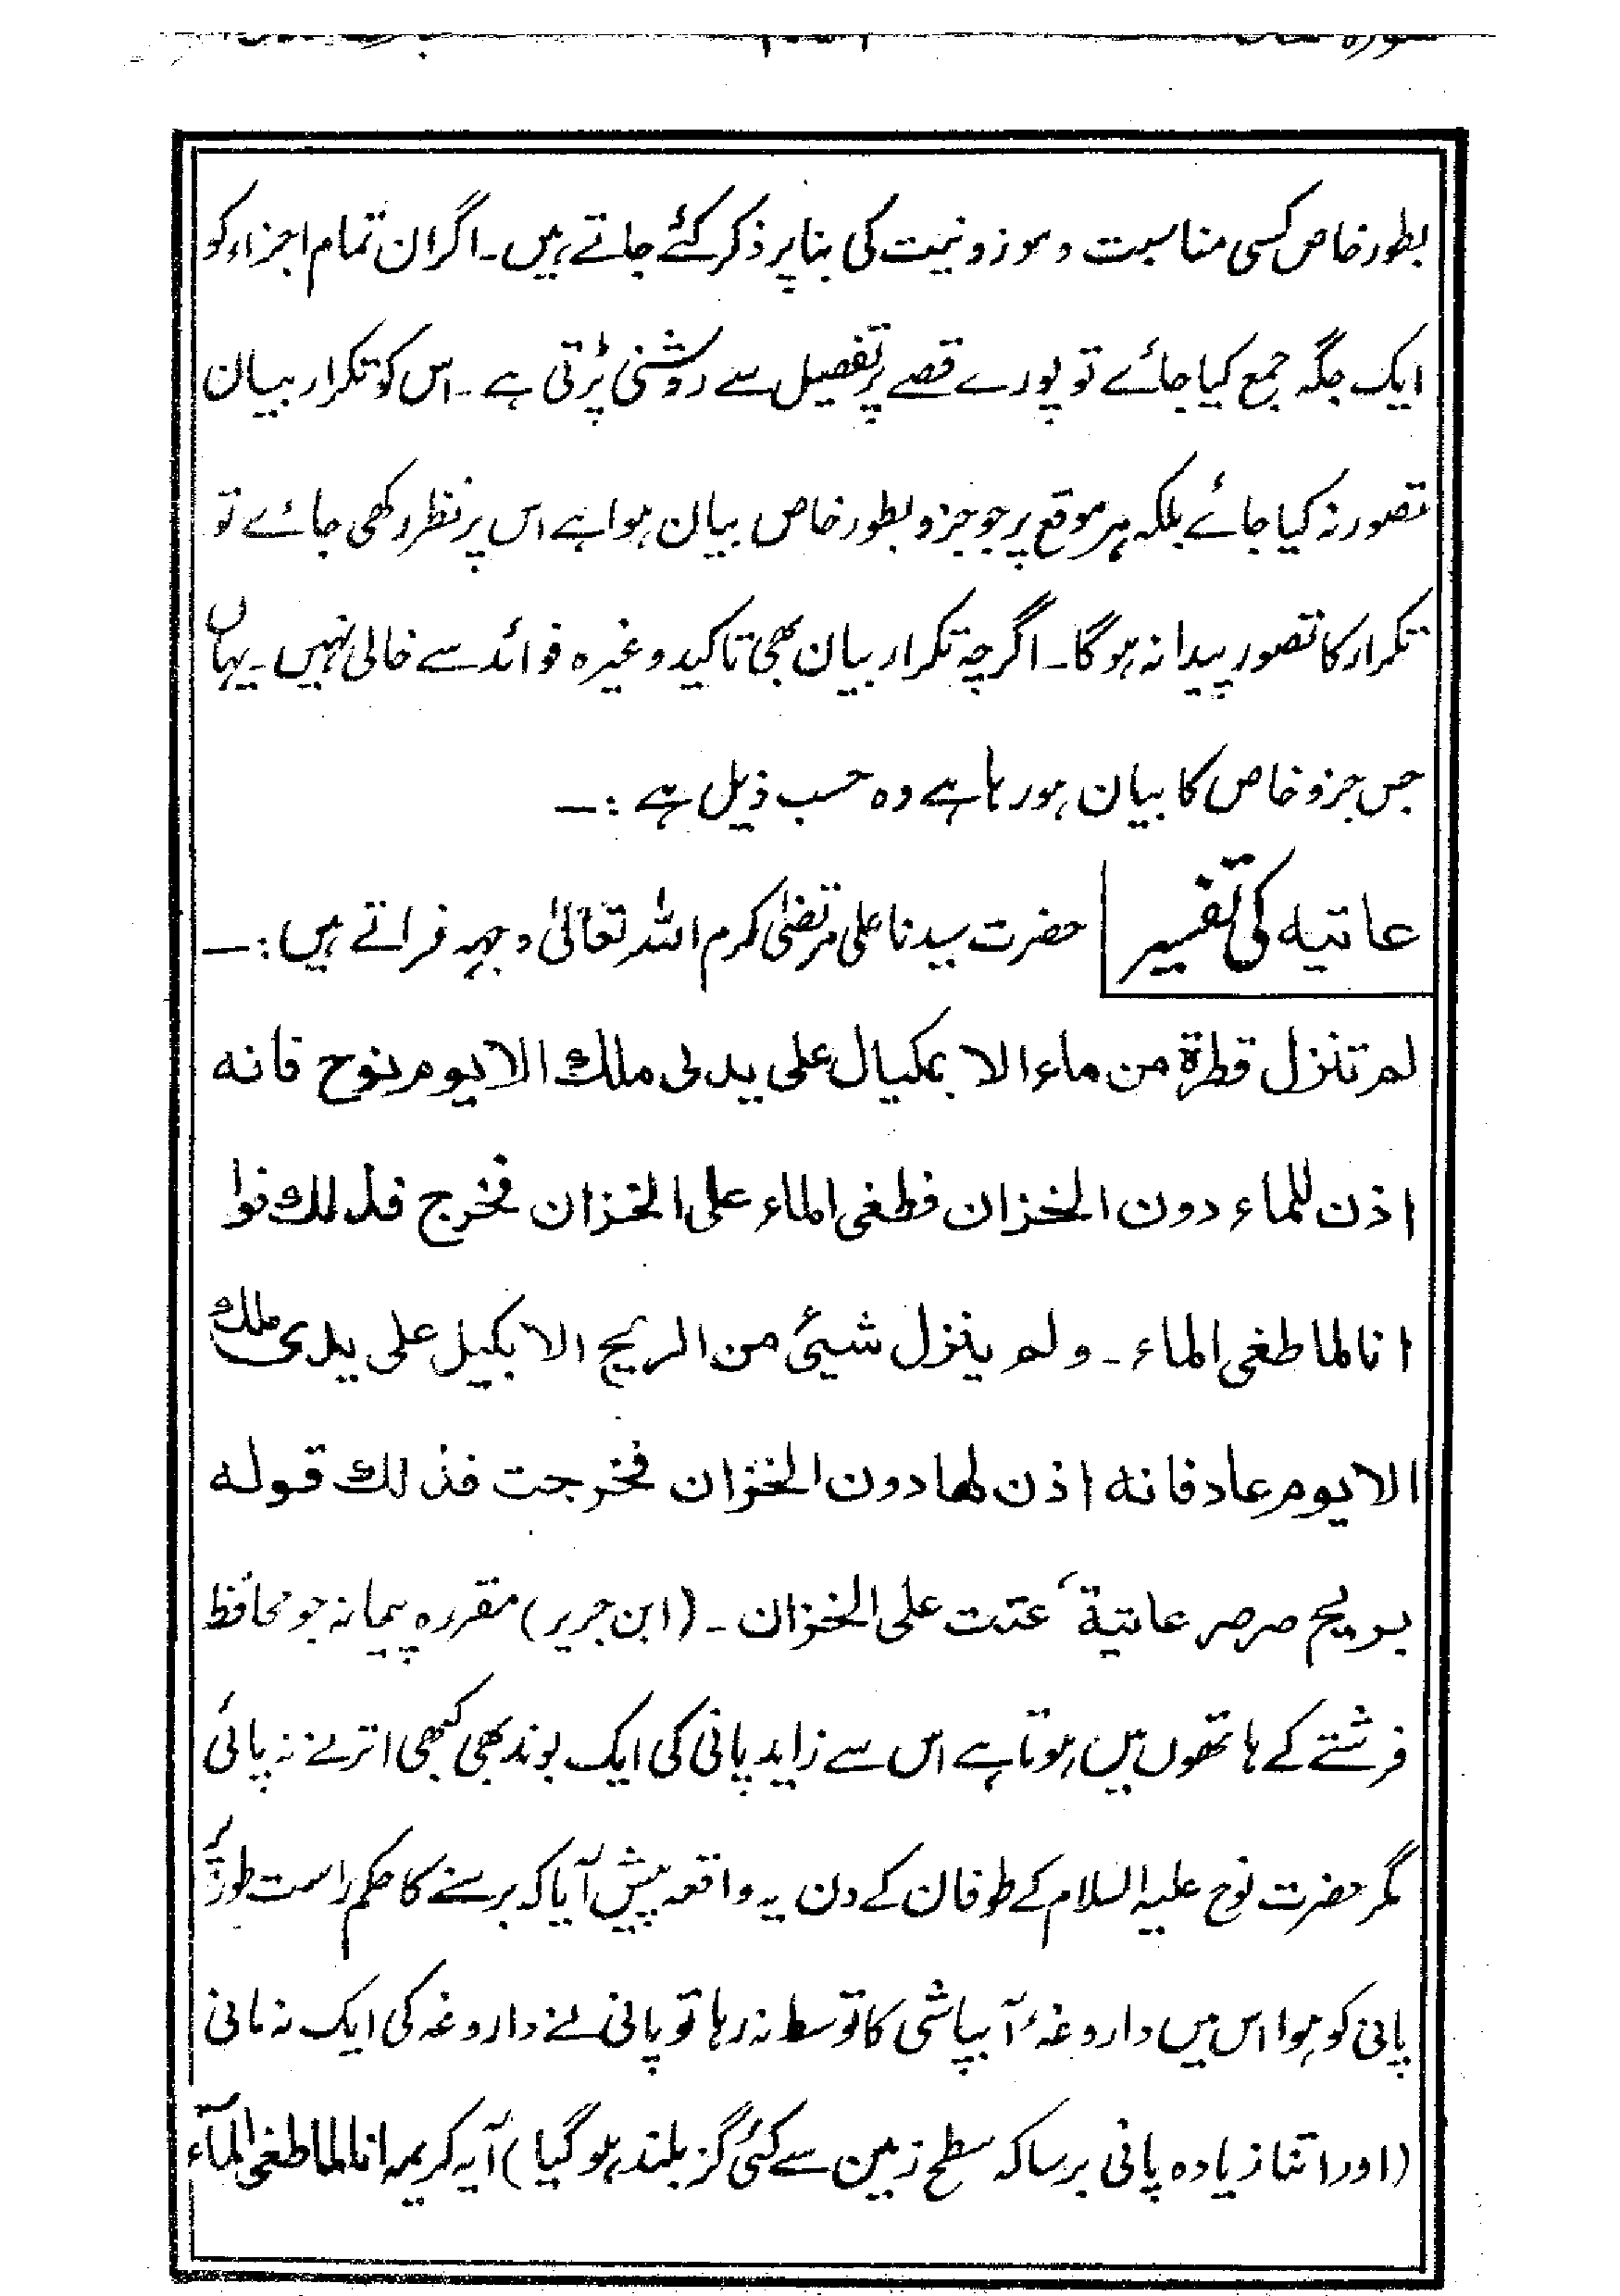 بطور خاص کسی مناسبت و موزونیت کی بنا پر ذکر کئے جاتے ہیں۔ اگر ان تمام اجزاء کو
ایک جگہ جمع کیا جائے تو پورے قصے پر تفصیل سے روشنی پڑتی ہے۔ اس کو تکرار بیان
تصور نہ کیا جائے بلکہ ہر موقع پر جو جزو بطور خاص بیان ہوا ہے اس پر نظر رکھی جائے تو
تکرار کا تصور پیدا نہ ہوگا۔ اگرچہ تکرار بیان بھی تاکید وغیرہ فوائد سے خالی نہیں۔ یہاں
جس جزو خاص کا بیان ہو رہا ہے وہ حسب ذیل ہے :۔
عاتیہ کی تفسیر حضرت سیدنا علی مرتضیٰ کرم اللہ تعالیٰ وجہہ فرماتے ہیں :۔
لم تنزل قطرة من ماء الا بمکیال علی یدی ملك الا یوم نوح فانه
اذن للماء دون الخزان فطغی الماء علی الخزان فخرج فذلك قوا
انا لما طغی الماء۔ ولم ینزل شیئ من الریح الا بکیل علی یدی ملك
الا یوم عاد فانه اذن لها دون الخزان فخرجت فذلك قوله
بریح صرصر عاتیة، عتت علی الخزان۔ (ابن جریر) مقررہ پیمانہ جو محافظ
فرشتے کے ہاتھوں میں ہوتا ہے اس سے زاید پانی کی ایک بوند بھی کبھی اترنے نہ پائی
مگر حضرت نوح علیہ السلام کے طوفان کے دن یہ واقعہ پیش آیا کہ برسنے کا حکم راست طور پر
پانی کو ہوا اس میں داروغۂ آبپاشی کا توسط نہ رہا تو پانی نے داروغہ کی ایک نہ مانی
(اور اتنا زیادہ پانی برسا کہ سطح زمین سے کئی گز بلند ہو گیا) آیہ کریمہ انا لما طغی المآء